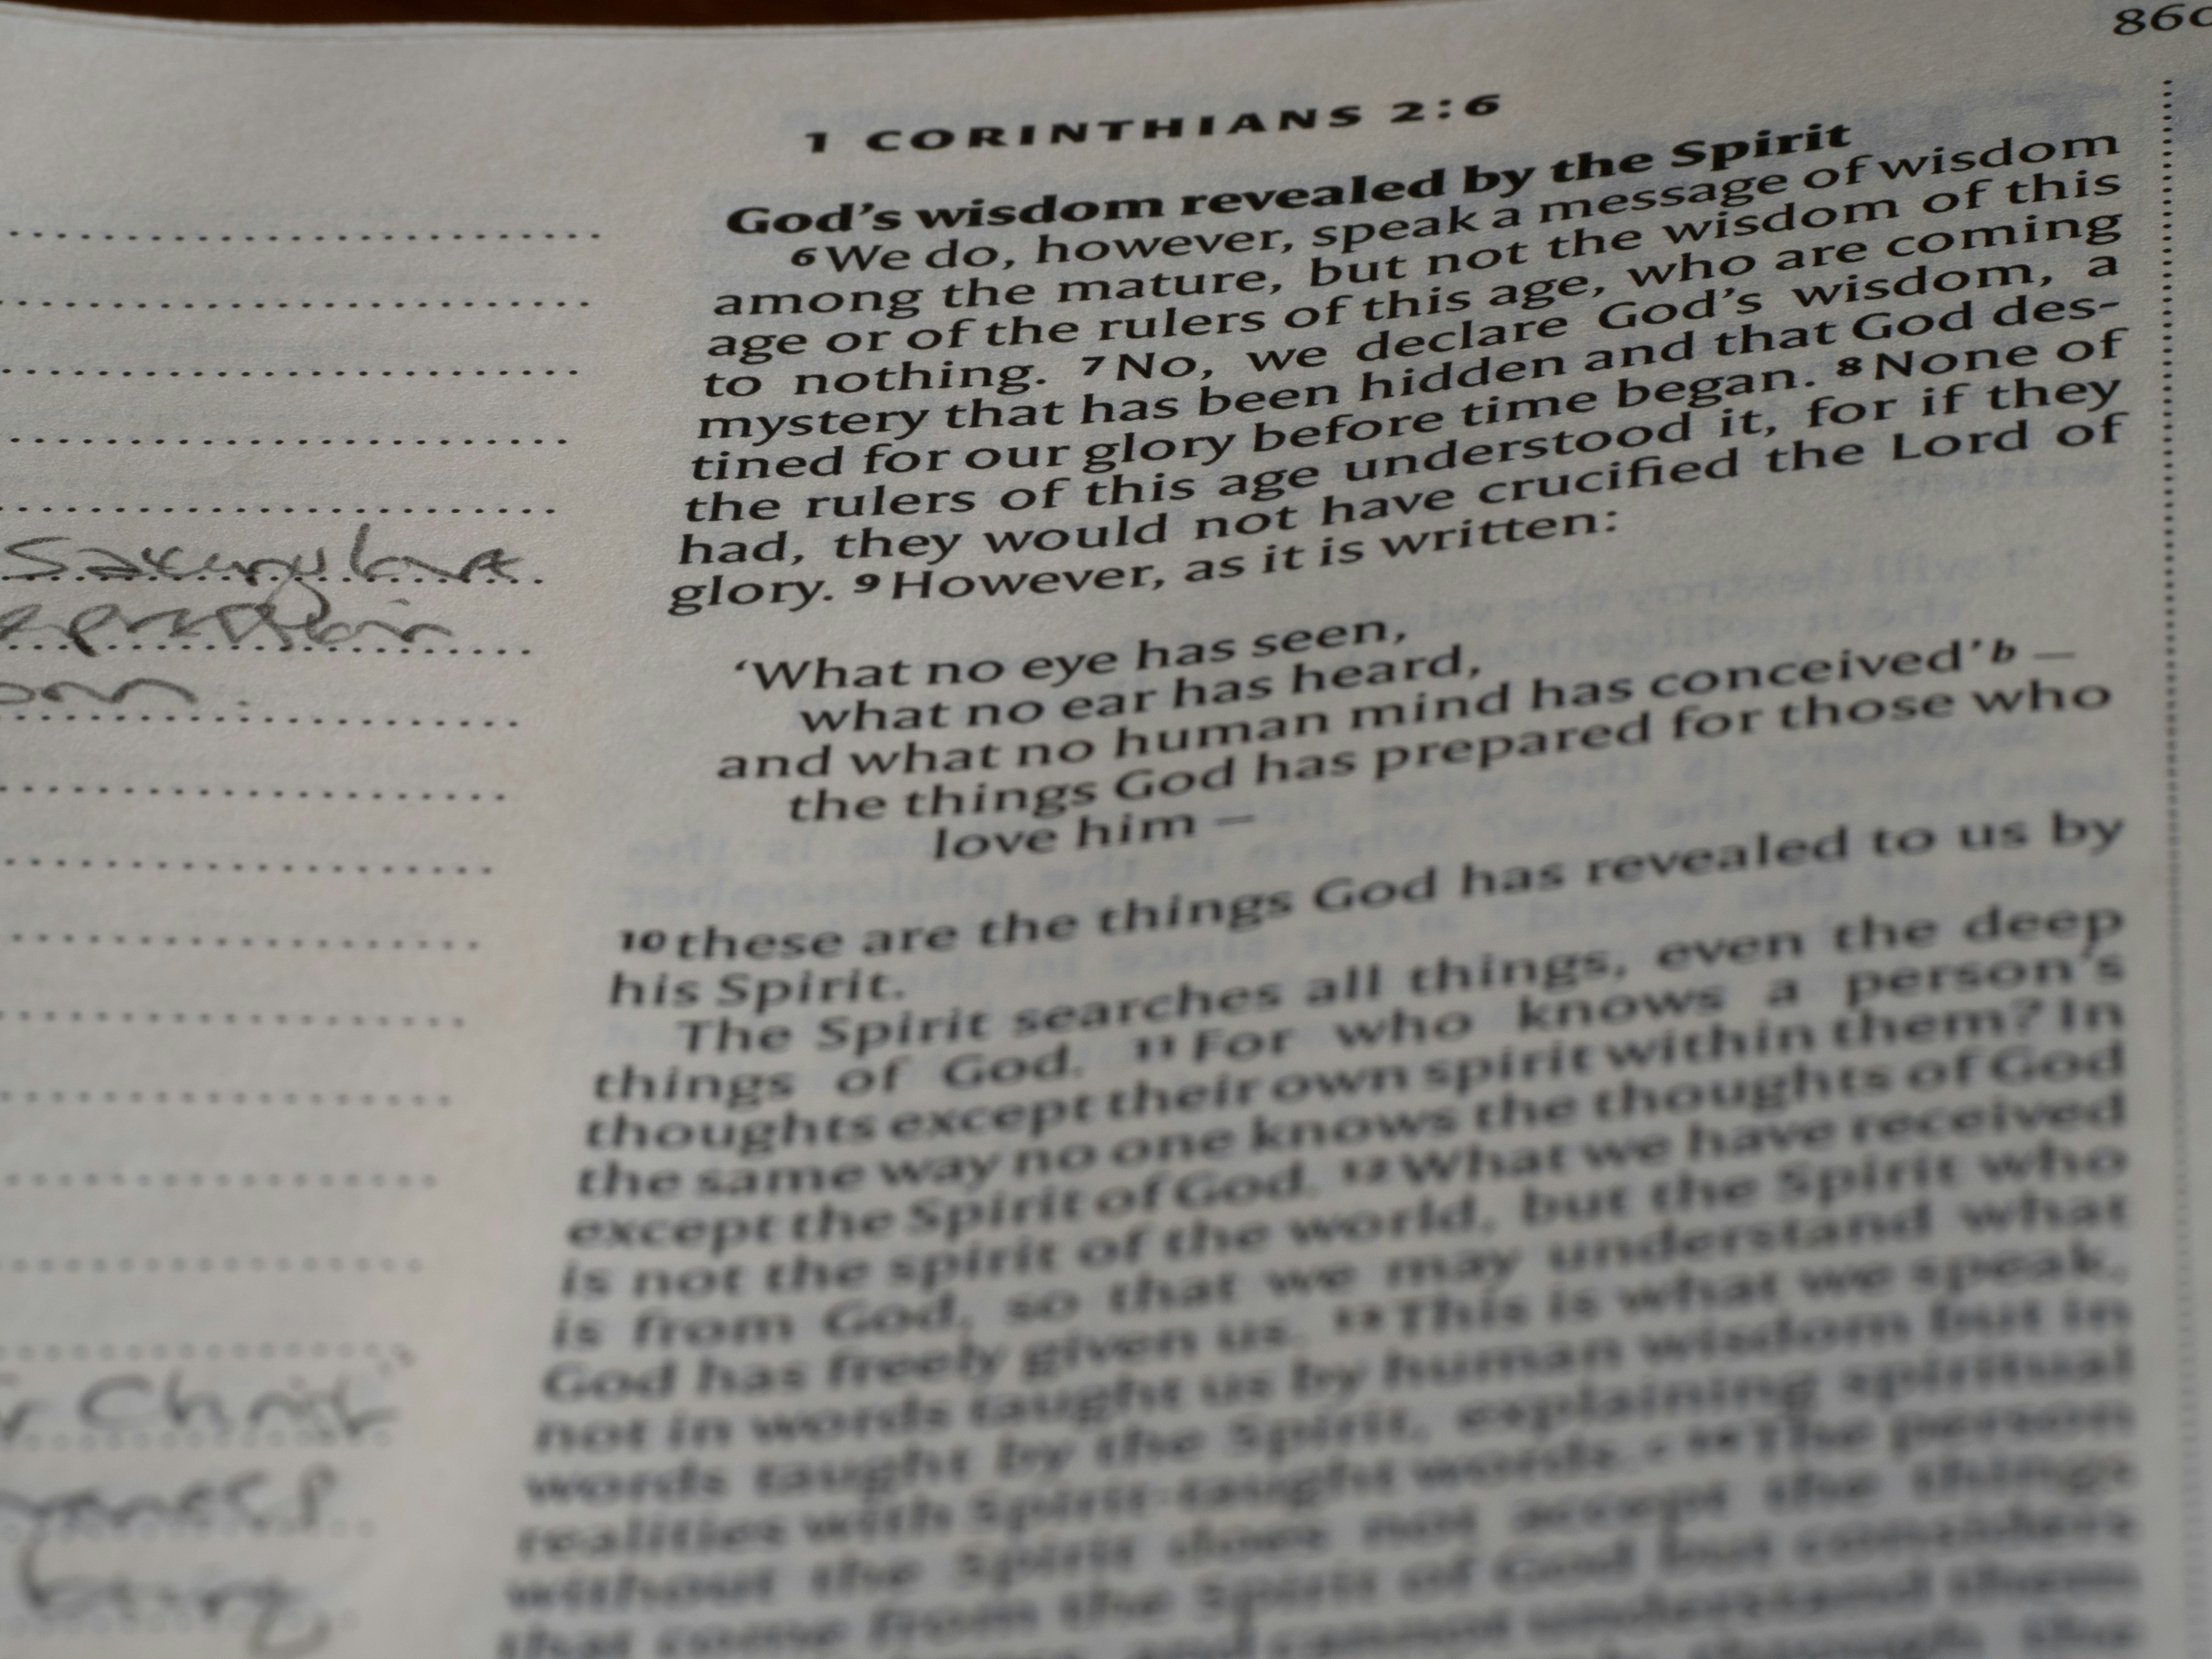 860
1 CORINTHIANS 2:6
God's wisdom revealed by the Spirit
6 We do, however, speak a message of wisdom
among the mature, but not the wisdom of this
age or of the rulers of this age, who are coming
to nothing. 7 No, we declare God's wisdom, a
mystery that has been hidden and that God des-
tined for our glory before time began. 8 None of
the rulers of this age understood it, for if they
had, they would not have crucified the Lord of
glory. 9 However, as it is written:
‘What no eye has seen,
what no ear has heard,
and what no human mind has conceived’ b —
the things God has prepared for those who
love him —
10 these are the things God has revealed to us by
his Spirit.
The Spirit searches all things, even the deep
things of God. 11 For who knows a person's
thoughts except their own spirit within them? In
the same way no one knows the thoughts of God
except the Spirit of God. 12 What we have received
is not the spirit of the world, but the Spirit who
is from God, so that we may understand what
God has freely given us. 13 This is what we speak,
not in words taught us by human wisdom but in
words taught by the Spirit, explaining spiritual
realities with Spirit-taught words. c 14 The person
without the Spirit does not accept the things
that come from the Spirit of God but considers
cannot understand them
through the
Christ